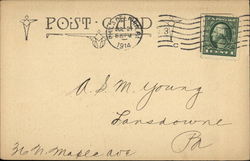 POST CARD
1914
A. S. M. Young
Lansdowne
Pa
36 N. Maple Ave